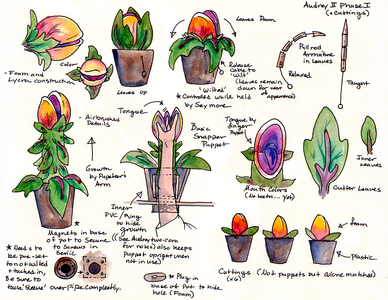 Audrey II Phase I
(+ Cuttings)
Color
- Foam and
Lycra construction
Leaves Up
Leaves Down
Release
Cable
to
"wilt"
(leaves remain
down for rest of
appearance)
"Wilted"
* Controled while held
by Seymore
Pull rod
Armature
in Leaves
Relaxed
Taught
- Airbrushed
Details
Growth
by Pupeteer's
Arm
Tongue
Basic
Snapper
Puppet
Tongue by
finger
Mouth Colors
(No teeth... yet)
Inner
Leaves
Outter Leaves
Inner
PVC/
to hide
growth
Magnets in base
of pot to secure
to Screws in
* Needs to
be pre-set
to
tucked in,
Be sure to
"Sleeve" over pipe completly.
(See Audrey two.com
for video) also keeps
puppet upright when
not in use)
* Plug in
base of Pot to hide
hole (Foam)
Foam
Plastic
Cuttings (Not puppets but allow matched)
(x6)